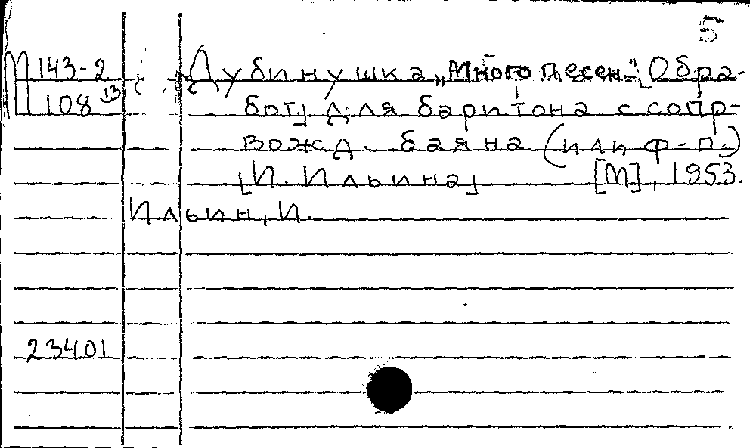 5
М 143-2 Дубинушка „Много песен." [Обра-
108 13 бот] для баритона с сопр-
вожд. баяна (или ф-п.)
[И. Ильина] [М], 1953.
Ильин, И.
23401